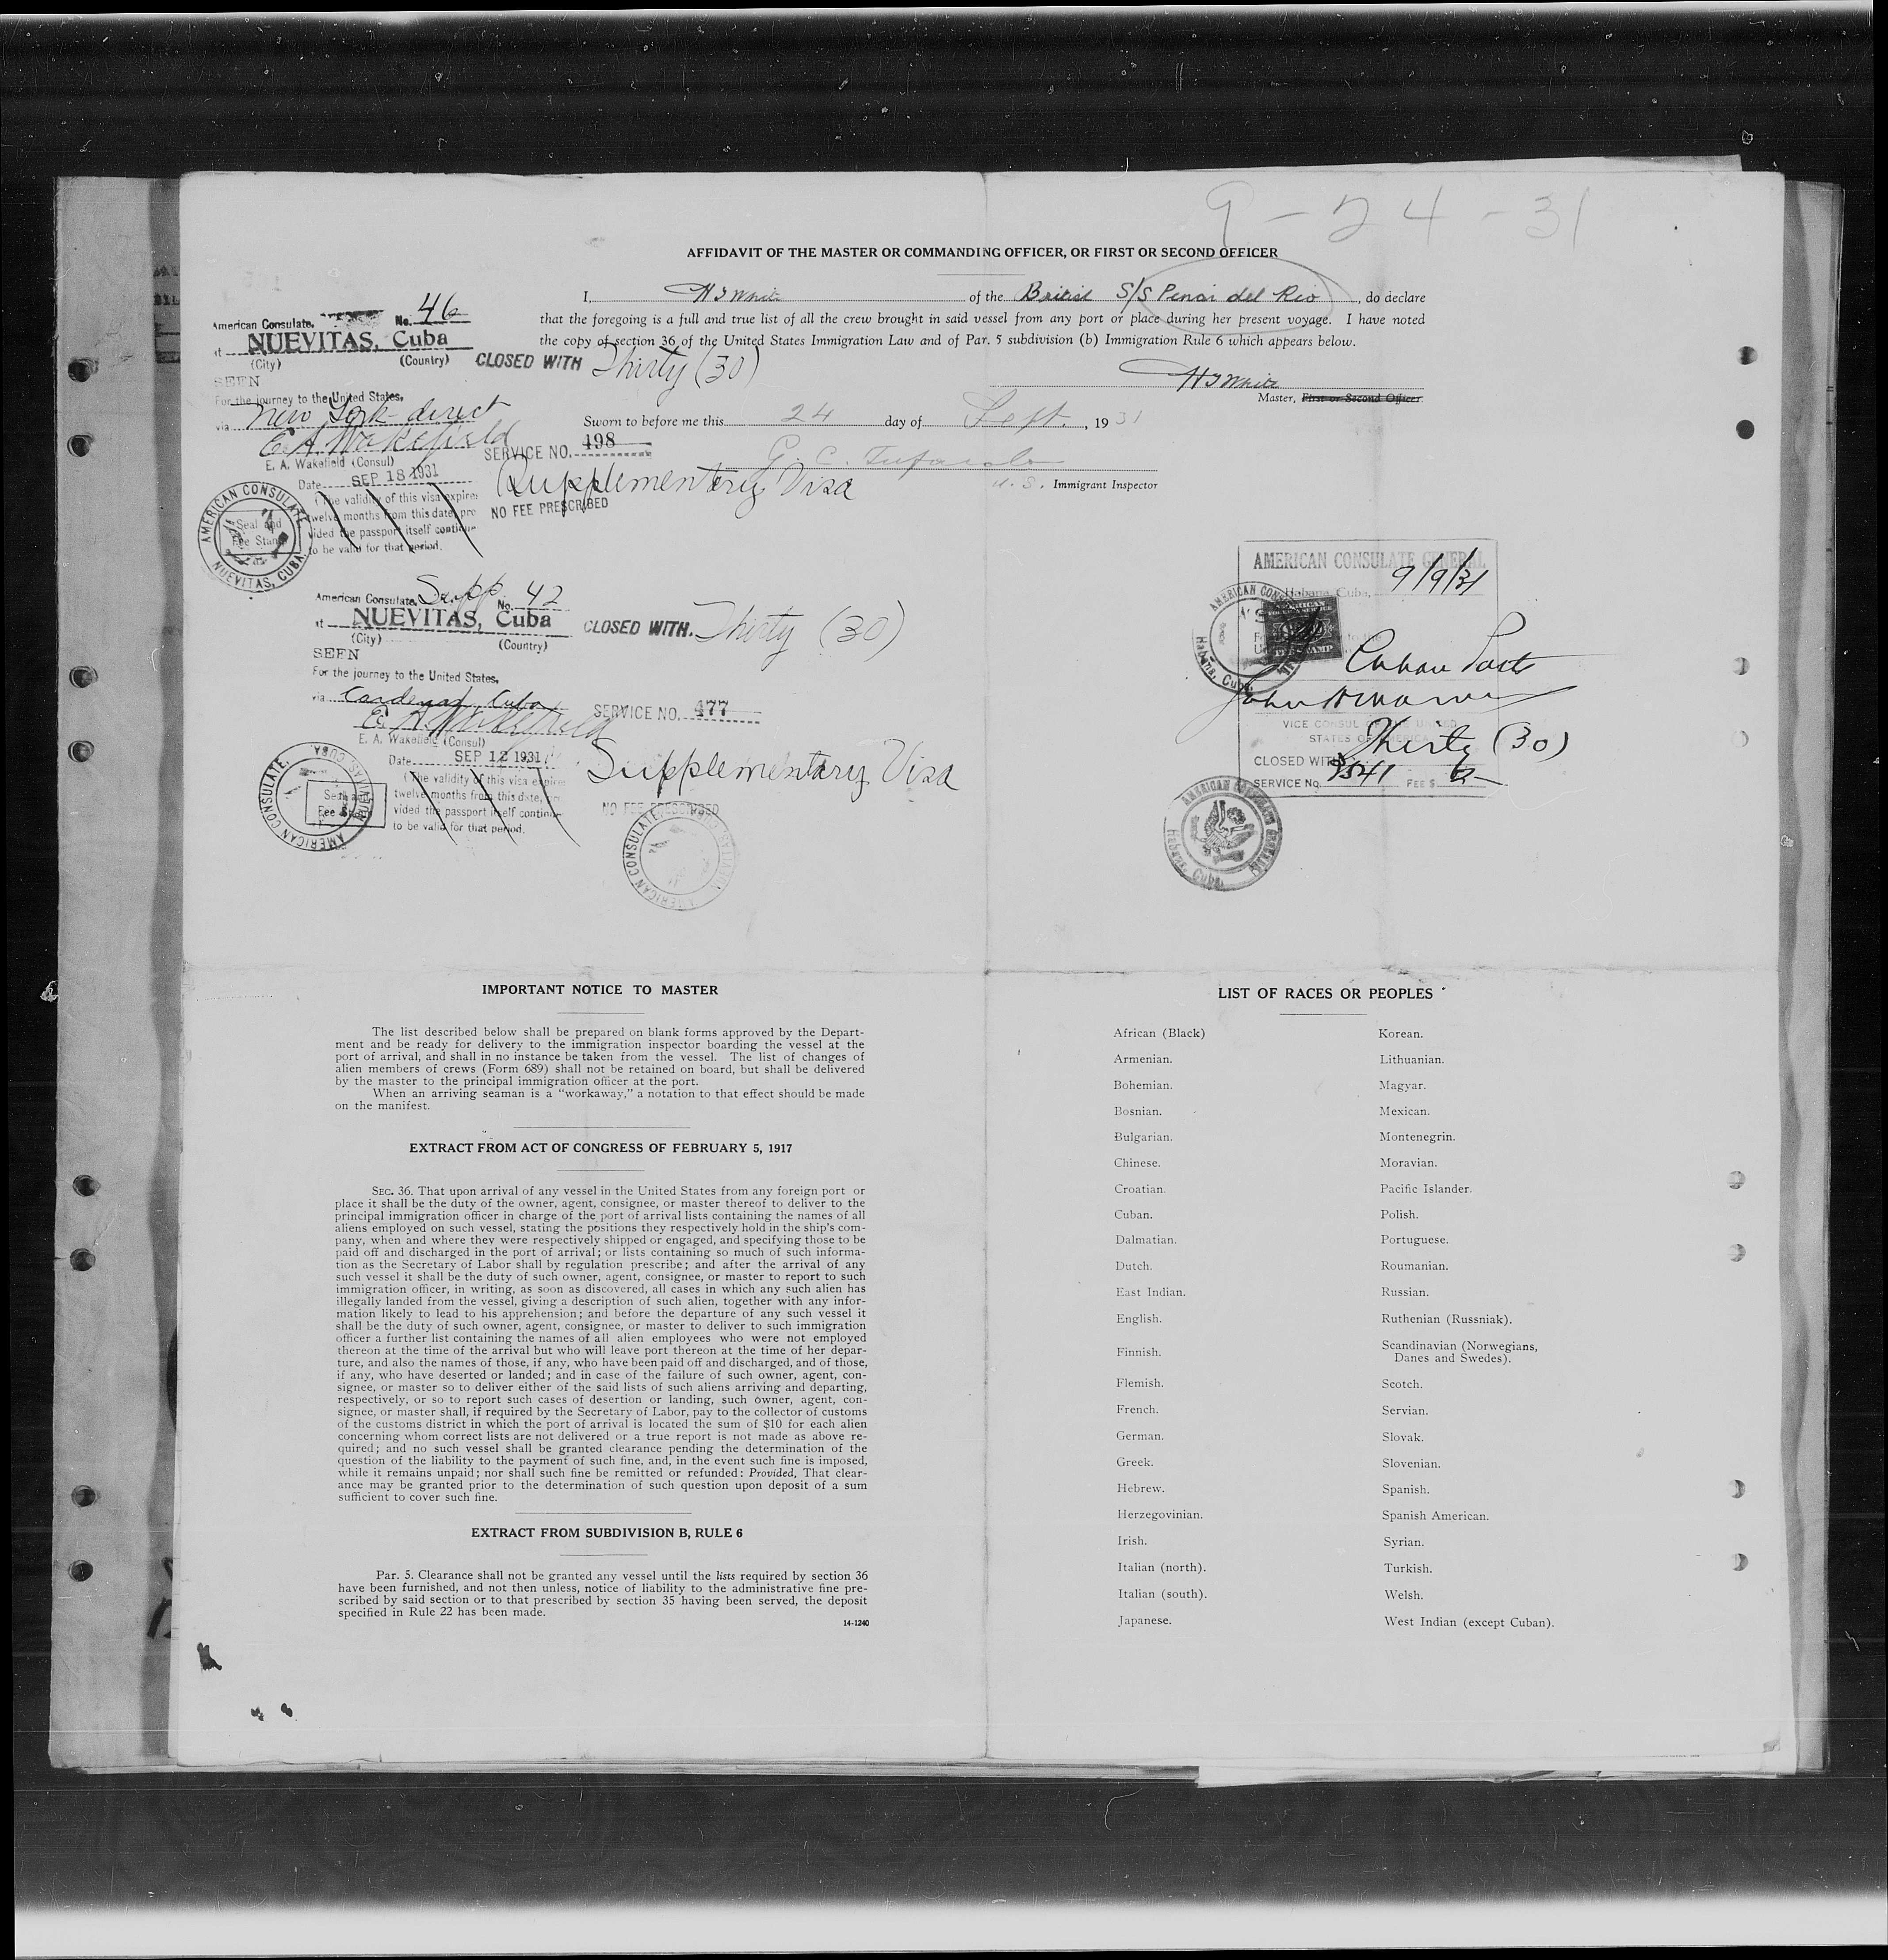 9-24-31
AFFIDAVIT OF THE MASTER OR COMMANDING OFFICER, OR FIRST OR SECOND OFFICER
I, H J White of the British S/S Penar del Rio, do declare
that the foregoing is a full and true list of all the crew brought in said vessel from any port or place during her present voyage. I have noted
the copy of section 36 of the United States Immigration Law and of Par. 5 subdivision (b) Immigration Rule 6 which appears below.
H J White
Master, First or Second Officer
Sworn to before me this 24 day of Sept., 1931
G. C.
U. S. Immigrant Inspector
American Consulate. No. 46
at NUEVITAS, Cuba
(City) (Country)
CLOSED WITH Thirty (30)
SEEN
For the journey to the United States,
via New York direct
E. A. Wakefield
E. A. Wakefield (Consul)
SERVICE NO. 498
Date SEP 18 1931
Supplementary Visa
NO FEE PRESCRIBED
(The validity of this visa expires
twelve months from this date, pro
vided the passport itself continue
to be valid for that period.
AMERICAN CONSULATE
NUEVITAS, CUBA.
Seal and
Fee Stamp
American Consulate. Supp No. 42
at NUEVITAS, Cuba
(City) (Country)
CLOSED WITH. Thirty (30)
SEEN
For the journey to the United States,
via Cardenas, Cuba
E. A. Wakefield
E. A. Wakefield (Consul)
SERVICE NO. 477
Date SEP 12 1931
Supplementary Visa
NO FEE PRESCRIBED
(The validity of this visa expire
twelve months from this date,
vided the passport itself continue
to be valid for that period.
AMERICAN CONSULATE.
NUEVITAS, CUBA.
Seal and
Fee Stamp
AMERICAN CONSULATE
AMERICAN CONSULATE GENERAL
Habana, Cuba, 9/9/31
AMERICAN
FEE STAMP
Habana, Cuba
Cuban Ports
John
VICE CONSUL OF THE UNITED
STATES OF AMERICA
Thirty (30)
CLOSED WITH
SERVICE No. 9541 FEE $
AMERICAN CONSULATE GENERAL
Habana, Cuba.
IMPORTANT NOTICE TO MASTER
The list described below shall be prepared on blank forms approved by the Depart-
ment and be ready for delivery to the immigration inspector boarding the vessel at the
port of arrival, and shall in no instance be taken from the vessel. The list of changes of
alien members of crews (Form 689) shall not be retained on board, but shall be delivered
by the master to the principal immigration officer at the port.
When an arriving seaman is a “workaway,” a notation to that effect should be made
on the manifest.
EXTRACT FROM ACT OF CONGRESS OF FEBRUARY 5, 1917
SEC. 36. That upon arrival of any vessel in the United States from any foreign port or
place it shall be the duty of the owner, agent, consignee, or master thereof to deliver to the
principal immigration officer in charge of the port of arrival lists containing the names of all
aliens employed on such vessel, stating the positions they respectively hold in the ship's com-
pany, when and where they were respectively shipped or engaged, and specifying those to be
paid off and discharged in the port of arrival; or lists containing so much of such informa-
tion as the Secretary of Labor shall by regulation prescribe; and after the arrival of any
such vessel it shall be the duty of such owner, agent, consignee, or master to report to such
immigration officer, in writing, as soon as discovered, all cases in which any such alien has
illegally landed from the vessel, giving a description of such alien, together with any infor-
mation likely to lead to his apprehension; and before the departure of any such vessel it
shall be the duty of such owner, agent, consignee, or master to deliver to such immigration
officer a further list containing the names of all alien employees who were not employed
thereon at the time of the arrival but who will leave port thereon at the time of her depar-
ture, and also the names of those, if any, who have been paid off and discharged, and of those,
if any, who have deserted or landed; and in case of the failure of such owner, agent, con-
signee, or master so to deliver either of the said lists of such aliens arriving and departing,
respectively, or so to report such cases of desertion or landing, such owner, agent, con-
signee, or master shall, if required by the Secretary of Labor, pay to the collector of customs
of the customs district in which the port of arrival is located the sum of $10 for each alien
concerning whom correct lists are not delivered or a true report is not made as above re-
quired; and no such vessel shall be granted clearance pending the determination of the
question of the liability to the payment of such fine, and, in the event such fine is imposed,
while it remains unpaid; nor shall such fine be remitted or refunded: Provided, That clear-
ance may be granted prior to the determination of such question upon deposit of a sum
sufficient to cover such fine.
EXTRACT FROM SUBDIVISION B, RULE 6
Par. 5. Clearance shall not be granted any vessel until the lists required by section 36
have been furnished, and not then unless, notice of liability to the administrative fine pre-
scribed by said section or to that prescribed by section 35 having been served, the deposit
specified in Rule 22 has been made.
14-1240
LIST OF RACES OR PEOPLES
African (Black)
Armenian.
Bohemian.
Bosnian.
Bulgarian.
Chinese.
Croatian.
Cuban.
Dalmatian.
Dutch.
East Indian.
English.
Finnish.
Flemish.
French.
German.
Greek.
Hebrew.
Herzegovinian.
Irish.
Italian (north).
Italian (south).
Japanese.
Korean.
Lithuanian.
Magyar.
Mexican.
Montenegrin.
Moravian.
Pacific Islander.
Polish.
Portuguese.
Roumanian.
Russian.
Ruthenian (Russniak).
Scandinavian (Norwegians,
Danes and Swedes).
Scotch.
Servian.
Slovak.
Slovenian.
Spanish.
Spanish American.
Syrian.
Turkish.
Welsh.
West Indian (except Cuban).